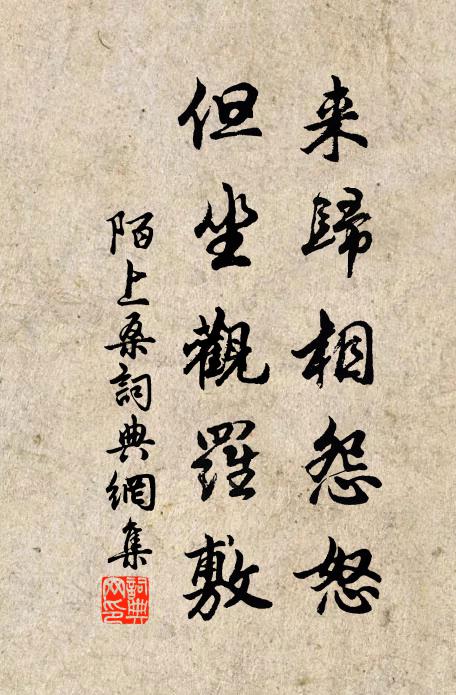 来歸相怨怒
但坐觀羅敷
陌上桑詞典網集
詞典網印